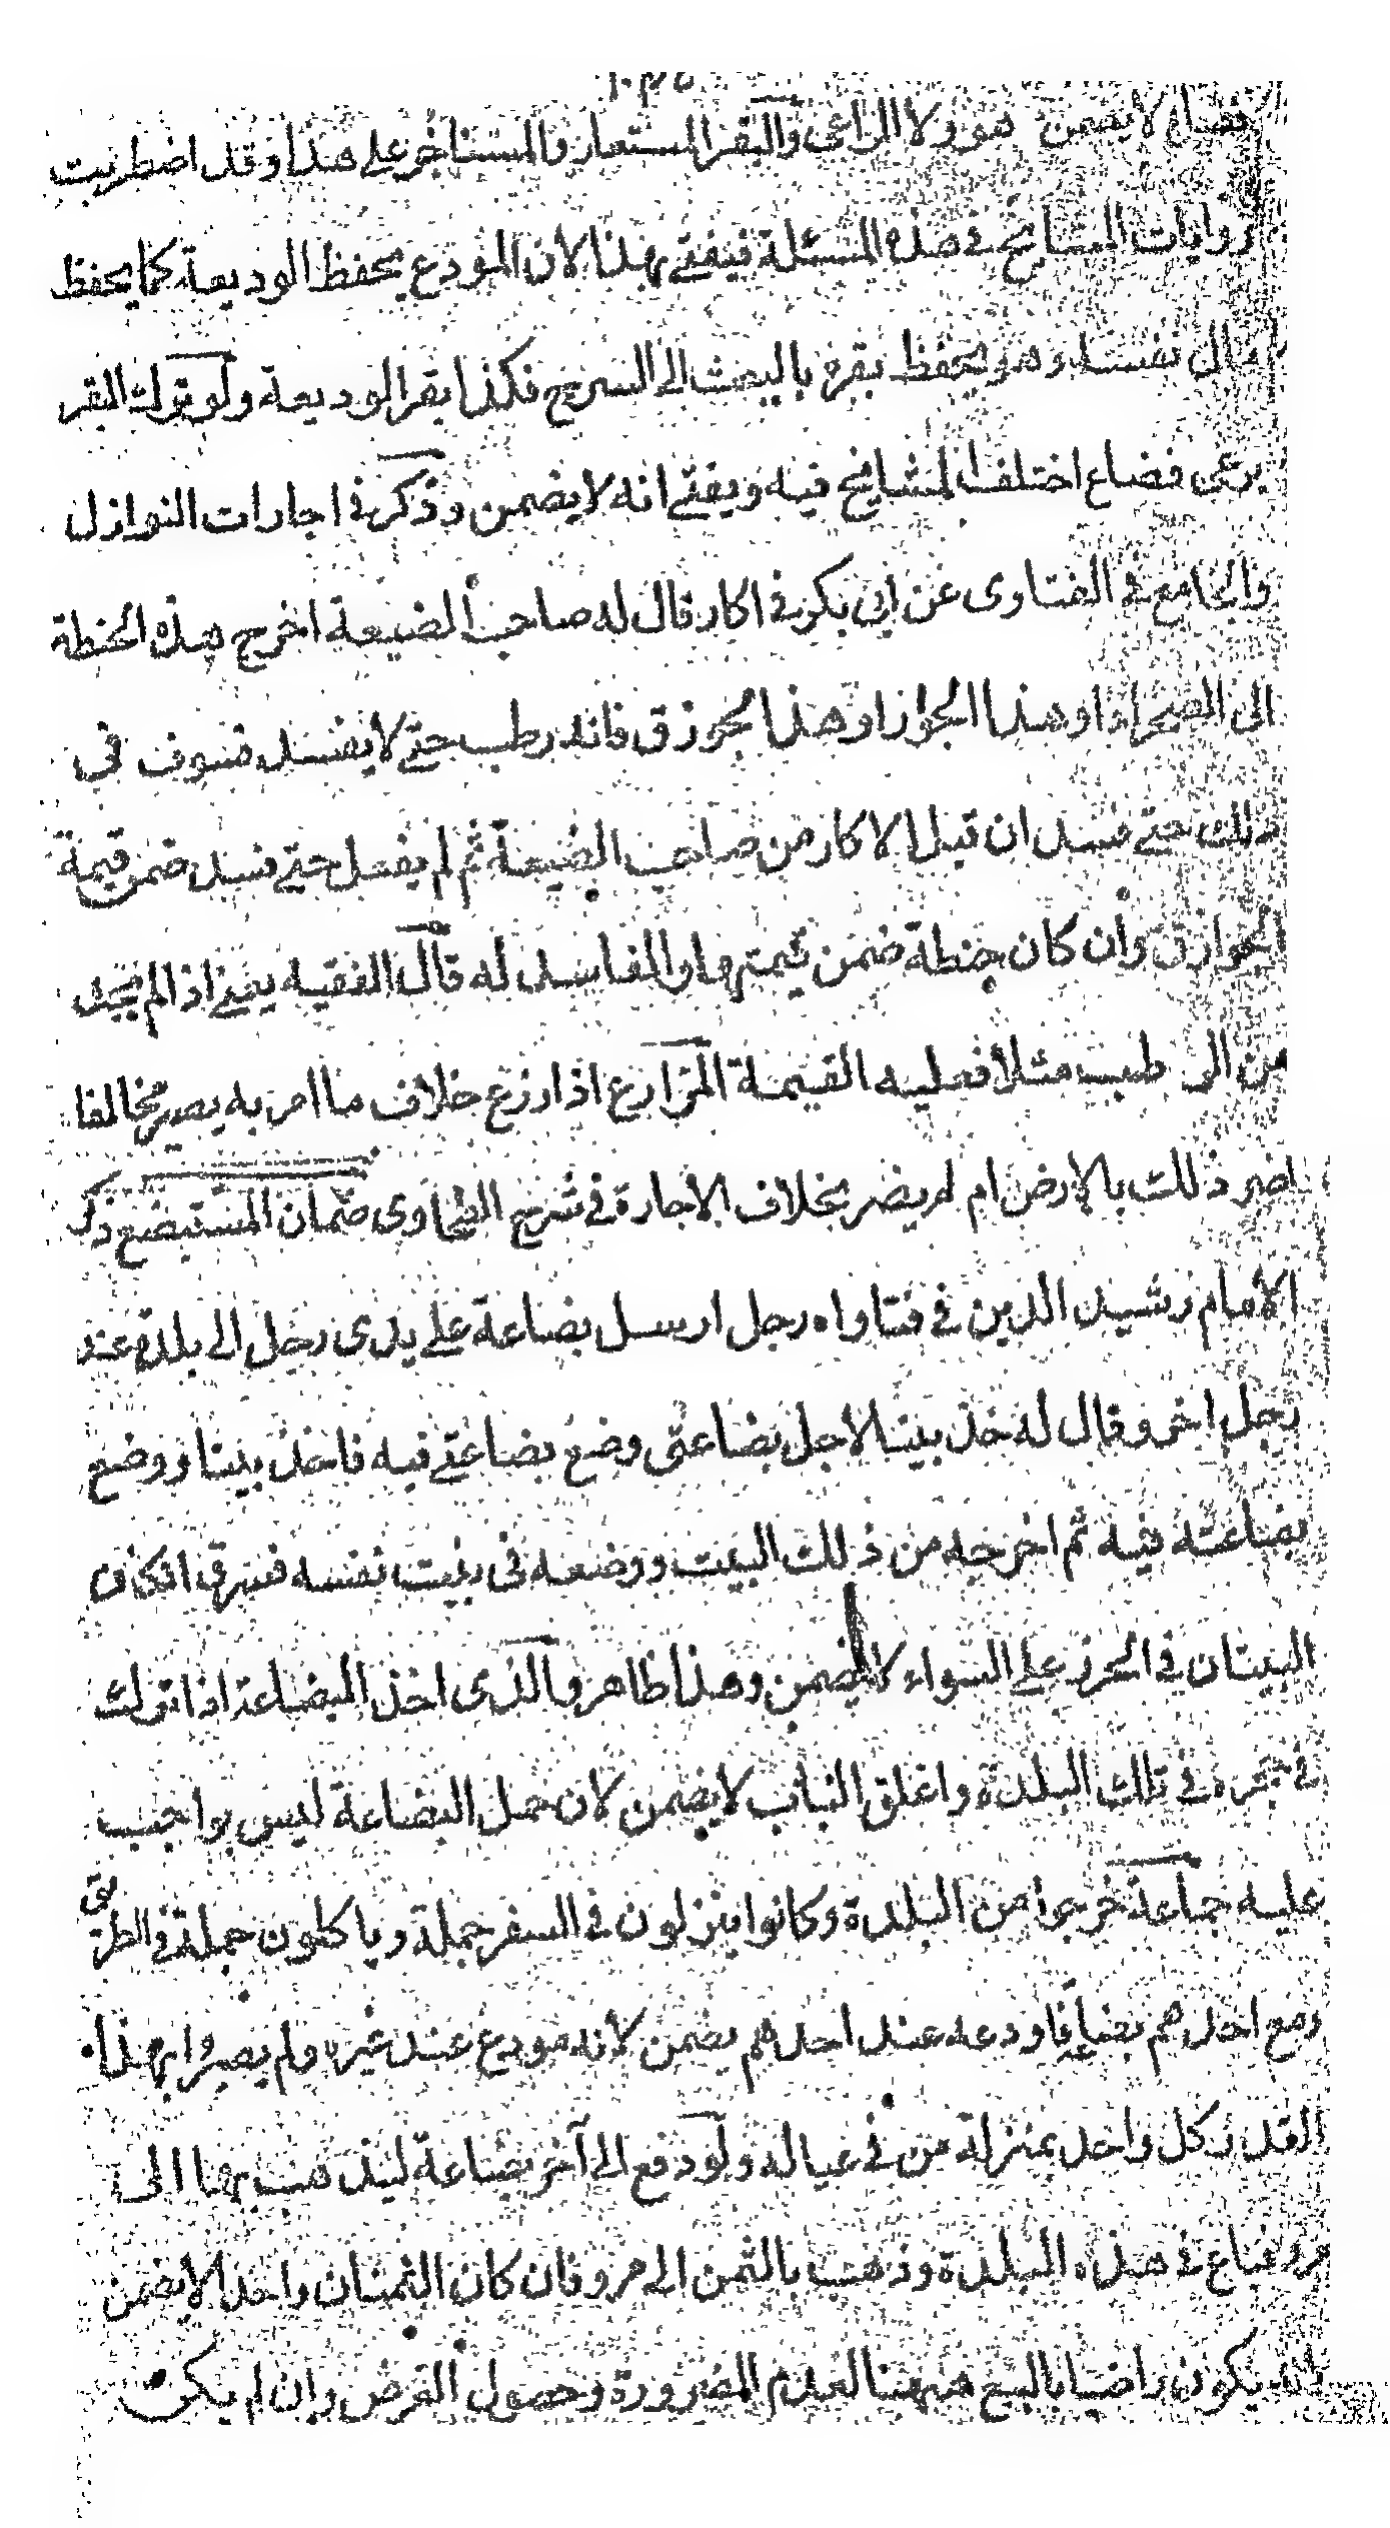 فضاع لا يضمن هو ولا الراعى والبقر المستعار والمستاجر على هذا وقد اضطربت
روايات المشايخ فى هذه المسئلة فيفتى بهذا لان المودع يحفظ الوديعة كما يحفظ
مال نفسه وهو يحفظ بقره بالبعث الى السرح فكذا بقر الوديعة ولو ترك البقر
يرعى فضاع اختلف المشايخ فيه ويفتى انه لا يضمن وذكر فى اجارات النوازل
والجامع فى الفتاوى عن ابى بكر فى اكار قال له صاحب الضيعة اخرج هذه الحنطة
الى الصحراء او هذا الجواز او هذا الجوزق فانه رطب حتى لا يفسد فسوف فى
ذلك حتى فسد ان قبل الاكار من صاحب الضيعة ثم لم يفعل حتى فسد ضمن قيمة
الجوازق وان كان حنطة ضمن قيمتها والفاسد له قال الفقيه يعنى اذا لم يجد
من الرطب مثلا فعليه القيمة المزارع اذا زرع خلاف ما امر به يصير مخالفا
اضر ذلك بالارض ام لم يضر بخلاف الاجارة فى شرح الطحاوى ضمان المستبضع ذكر
الامام رشيد الدين فى فتاواه رجل ارسل بضاعة على يدى رجل الى بلدة عند
رجل اخر وقال له خذ بيتا لاجل بضاعتى وضع بضاعتى فيه فاخذ بيتا ووضع
بضاعته فيه ثم اخرجه من ذلك البيت ووضعه فى بيت نفسه فسرق ان كان
البيتان فى الحرز على السواء لا يضمن وهذا ظاهر والذى اخذ البضاعة اذا ترك
فى حجره فى تلك البلدة واغلق الباب لا يضمن لان حمل البضاعة ليس بواجب
عليه جماعة خرجوا من البلدة وكانوا ينزلون فى السفر جملة وياكلون جملة فى الطريق
ومع احدهم بضايع فاودعه عند احدهم يضمن لانه مودع عند غيره ولم يصيروا بهذا
القدر كل واحد بمنزلة من فى عياله ولو دفع الى آخر بضاعة ليذهب بها الى
مرو فباع فى هذه البلدة وذهب بالثمن الى مرو فان كان الثمنان واحدا لا يضمن
لانه يكون راضيا بالبيع ههنا لعدم الضرورة وحصول الغرض وان لم يكن